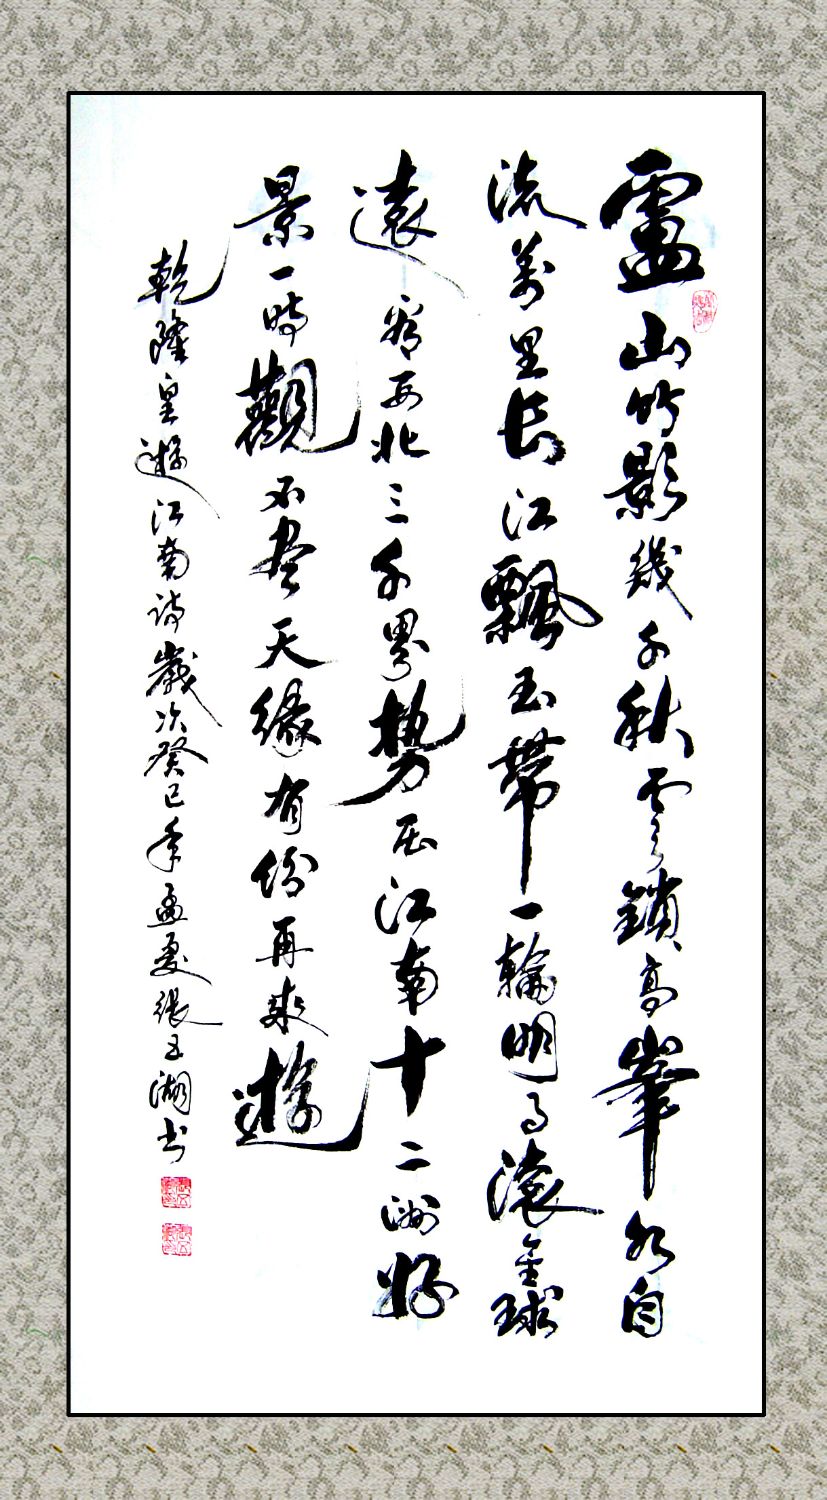 盧山竹影幾千秋雲鎖高峯水自
流萬里長江飄玉帶一輪明月滾金球
遠看西北三千界勢压江南十二洲好
景一時觀不盡天緣有份再來遊
乾隆皇遊江南詩歲次癸巳年孟夏張五湖书